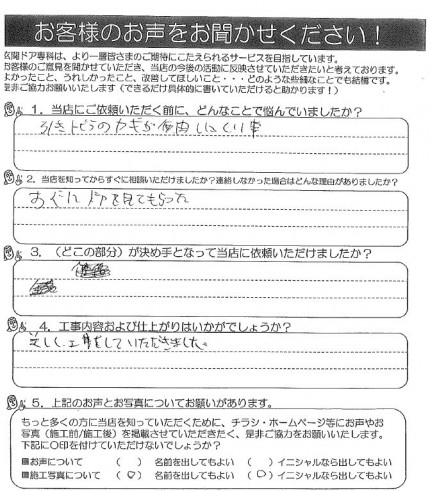 お客様のお声をお聞かせください！
玄関ドア専科は、より一層皆さまのご期待にこたえられるサービスを目指しています。
お客様のご意見を聞かせていただき、当店の今後の活動に反映させていただきたいと考えております。
よかったこと、うれしかったこと、改善してほしいこと・・・どのような些細なことでも結構です。
是非ご協力お願いいたします（できるだけ具体的に書いていただけると助かります！）
1．当店にご依頼いただく前に、どんなことで悩んでいましたか？
引きトビラのカギが
2．当店を知ってからすぐに相談いただけましたか？連絡しなかった場合はどんな理由がありましたか？
ドアを見てもらった
3．（どこの部分）が決め手となって当店に依頼いただけましたか？
4．工事内容および仕上がりはいかがでしょうか？
正しく工事していただきました。
5．上記のお声とお写真についてお願いがあります。
もっと多くの方に当店を知っていただくために、チラシ・ホームページ等にお声やお
写真（施工前/施工後）を掲載させていただきたく、是非ご協力をお願いいたします。
下記に〇印を付けていただけないでしょうか？
■お声について （ ） 名前を出してもよい （ ）イニシャルなら出してもよい
■施工写真について （〇） 名前を出してもよい （〇）イニシャルなら出してもよい